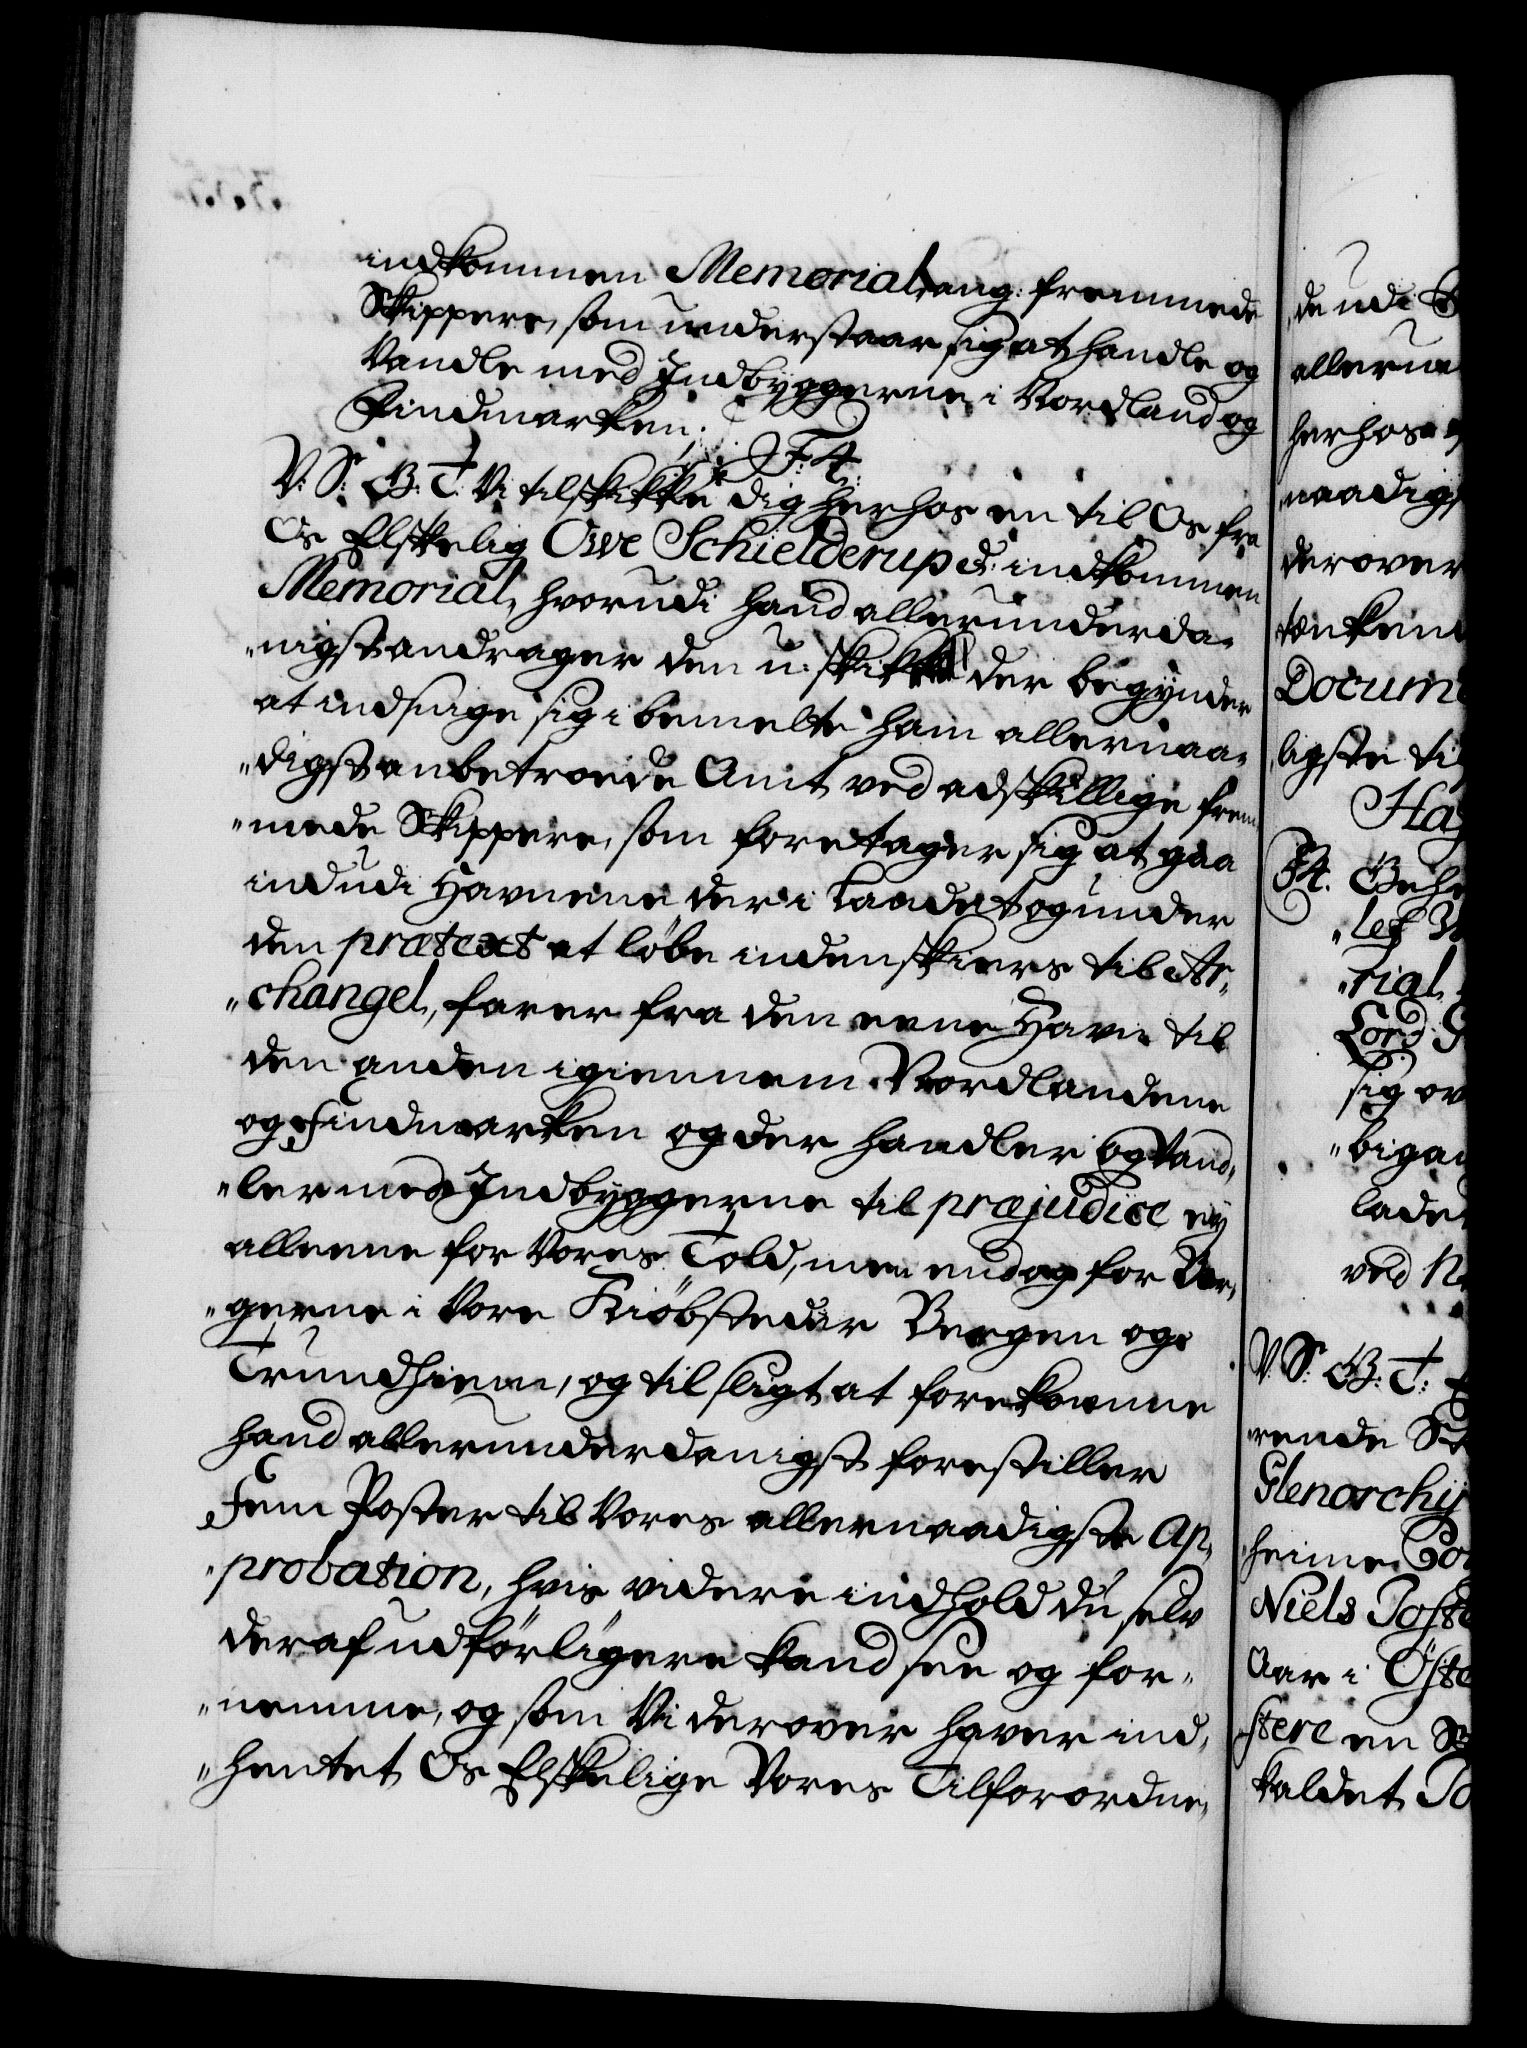 indkommen Memorial, ang: fremmede
Skippere, som understaar sig at handle og
Vandle med Indbyggerne i Nordland og
Findmarken. F: 4.
V: S: G: T: Vi tilskikke dig herhos en til Os fra
Os Elskelig Ove Schielderup &: indkommen
Memorial, hvorudi hand allerunderda-
"nigst andrager den u-skikk der begynder
at indsnige sig i bemelte ham allernaa-
"digst anbetroede Amt ved adskillige frem
"mede Skippere, som foretager sig at gaa
ind udi Havnene der i Landet og under
den prætext at løbe indenskiers til Ar-
"changel, farer fra den eene Havn til
den anden igiennem Nordlandene
og Findmarken og der handler og vand-
"ler med Indbyggerne til præjudice ey
alleene for Vores Told, men endog for Bor-
"gerne i Vore Kiøbsteder Bergen og
Trundhiem, og til sligt at forekomme
hand allerunderdanigst forestiller
Fem Poster til Vores allernaadigste Ap-
"probation, hvis videre indhold du selv
deraf udførligere kand see og for-
"nemme, og som Vi derover haver ind-
"hentet Os Elskelige Vores Tilforordne-
de udi
allerun
herhos
naadigs
derover
tænken
Docum
ligste til
Ha
F4. Beh
"lef
"rial
Lord G
sig ov
"bigan
lade
ved N
V: S: G: T:
"rende
Glenorchy
"heime
Niels Poste
Aar i Øste
"stere en
kaldet